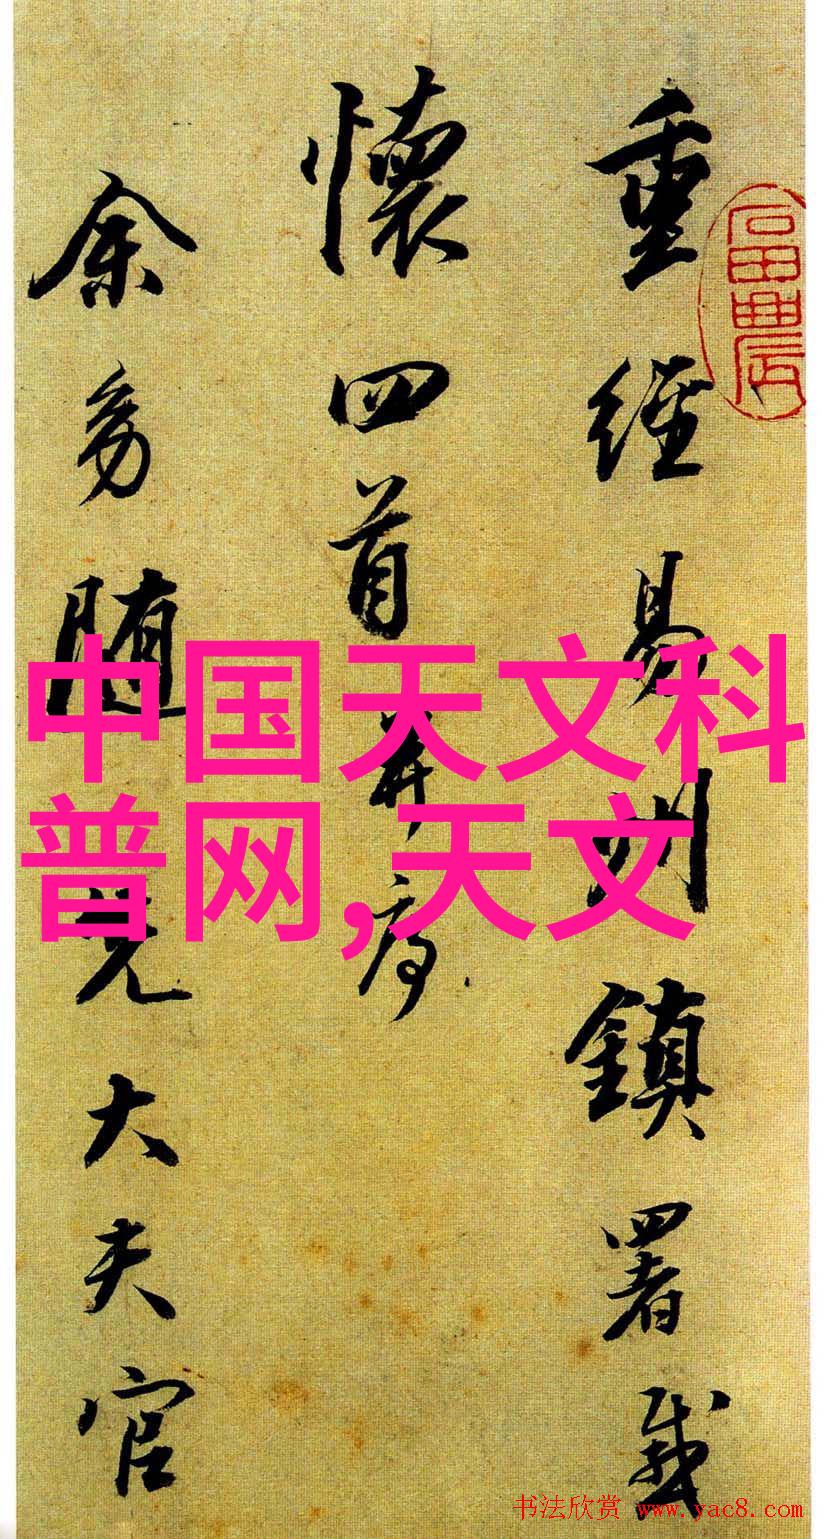 重經易州鎮署感
懷四首并序
余易隨先大夫官
中国天文科
普网,天文
书法欣赏 www.yac8.com